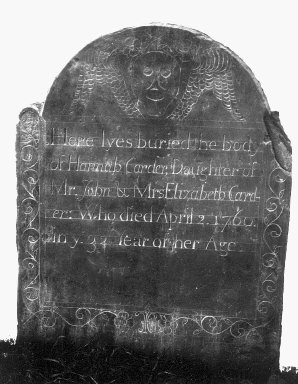 Here lyes buried the body
of Hannah Carder, Daughter of
Mr. John & Mrs Elizabeth Card-
er; Who died April 2, 1760.
In y. 32 Year of her Age.